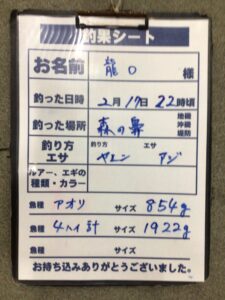 釣果シート
お名前 龍〇 様
釣った日時 2月17日 22時頃
釣った場所 森の鼻 地磯 沖磯 堤防
釣り方 エサ 釣り方 ヤエン エサ アジ
ルアー、エギの種類・カラー
魚種 アオリ サイズ 854g
魚種 4ハイ計 サイズ 1922g
魚種 サイズ
お持ち込みありがとうございました。